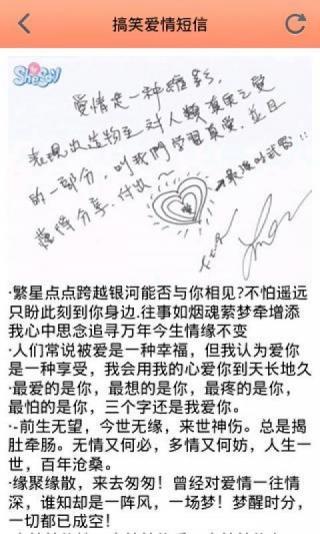 搞笑爱情短信
SheSay
爱情是一种
表現出造物主对人類真实之愛
的一部分，叫我們学習真愛，並且
懂得分享、付出～
最強的武器!!
·繁星点点跨越银河能否与你相见?不怕遥远
只盼此刻到你身边.往事如烟魂萦梦牵增添
我心中思念追寻万年今生情缘不变
·人们常说被爱是一种幸福，但我认为爱你
是一种享受，我会用我的心爱你到天长地久
·最爱的是你，最想的是你，最疼的是你，
最怕的是你，三个字还是我爱你。
·-前生无望，今世无缘，来世神伤。总是揭
肚牵肠。无情又何必，多情又何妨，人生一
世，百年沧桑。
·缘聚缘散，来去匆匆！曾经对爱情一往情
深，谁知却是一阵风，一场梦！梦醒时分，
一切都已成空！